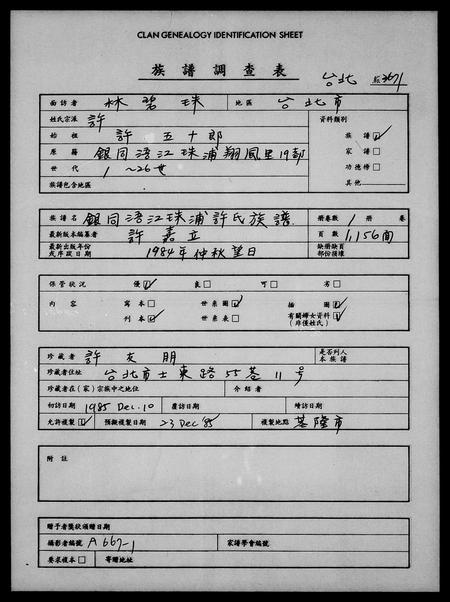 CLAN GENEALOGY IDENTIFICATION SHEET
族譜調查表 台北
面訪者 林碧珠 地區 台北市
姓氏宗派 許 資料類別
始祖 許五十郎 族譜☑
原籍 銀同浯江珠浦翔風里19都 家譜□
世代 1~26世 功德榜□
族譜包含地區 其他
族譜名 銀同浯江珠浦許氏族譜 冊卷數 1 冊 卷
最新版本編纂者 許嘉立 頁數 1,156面
最新出版年份或序跋日期 1984年仲秋望日 缺冊缺頁部份損壞
保管狀況 優☑ 良□ 可□ 劣□
內容 寫本□ 世系圖☑ 插圖☑
刊本☑ 世系表□ 有關婦女資料☑
(非僅姓氏)
珍藏者 許友朋 是否列入本族譜
珍藏者住址 台北市士東路55巷11号
珍藏者在(家)宗族中之地位 介紹者
初訪日期 1985 Dec. 10 覆訪日期 續訪日期
允許複製☑ 預擬複製日期 23 Dec 85 複製地點 基隆市
附註
贈予者獎狀頒贈日期
攝影者編號 A667-1 家譜學會編號
要求複本□ 寄贈地址